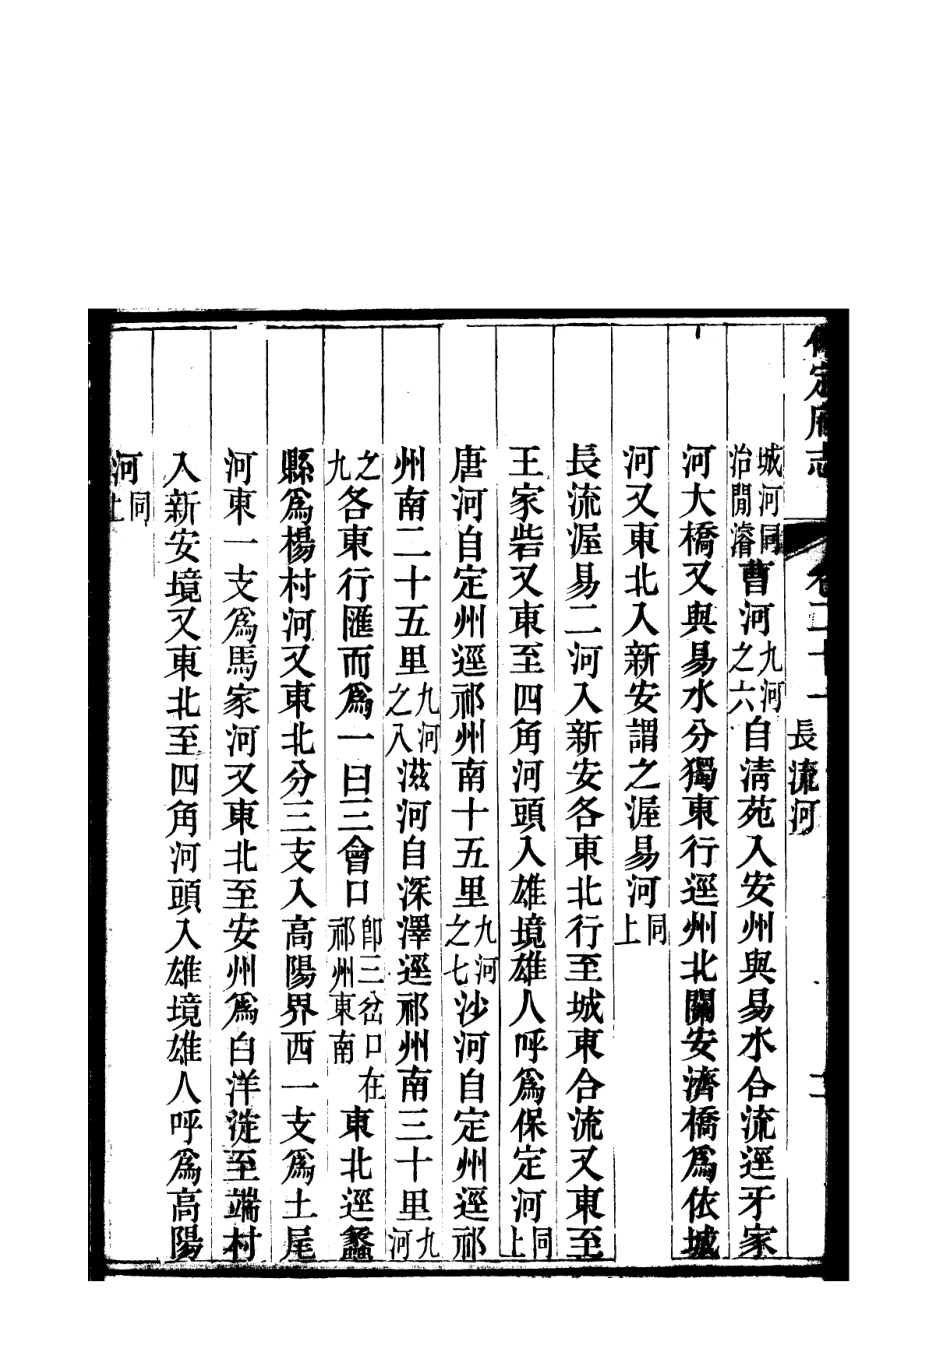 保定府志 卷二十一 長流河 三
城河同治閒濬曹河九河之六自清苑入安州與易水合流逕牙家
河大橋又與易水分獨東行逕州北關安濟橋爲依城
河又東北入新安謂之渥易河同上
長流渥易二河入新安各東北行至城東合流又東至
王家砦又東至四角河頭入雄境雄人呼爲保定河同上
唐河自定州逕祁州南十五里九河之七沙河自定州逕祁
州南二十五里九河之八滋河自深澤逕祁州南三十里九河
之九各東行匯而爲一曰三會口卽三岔口在祁州東南東北逕蠡
縣爲楊村河又東北分三支入高陽界西一支爲土尾
河東一支爲馬家河又東北至安州爲白洋淀至端村
入新安境又東北至四角河頭入雄境雄人呼爲高陽
河同上